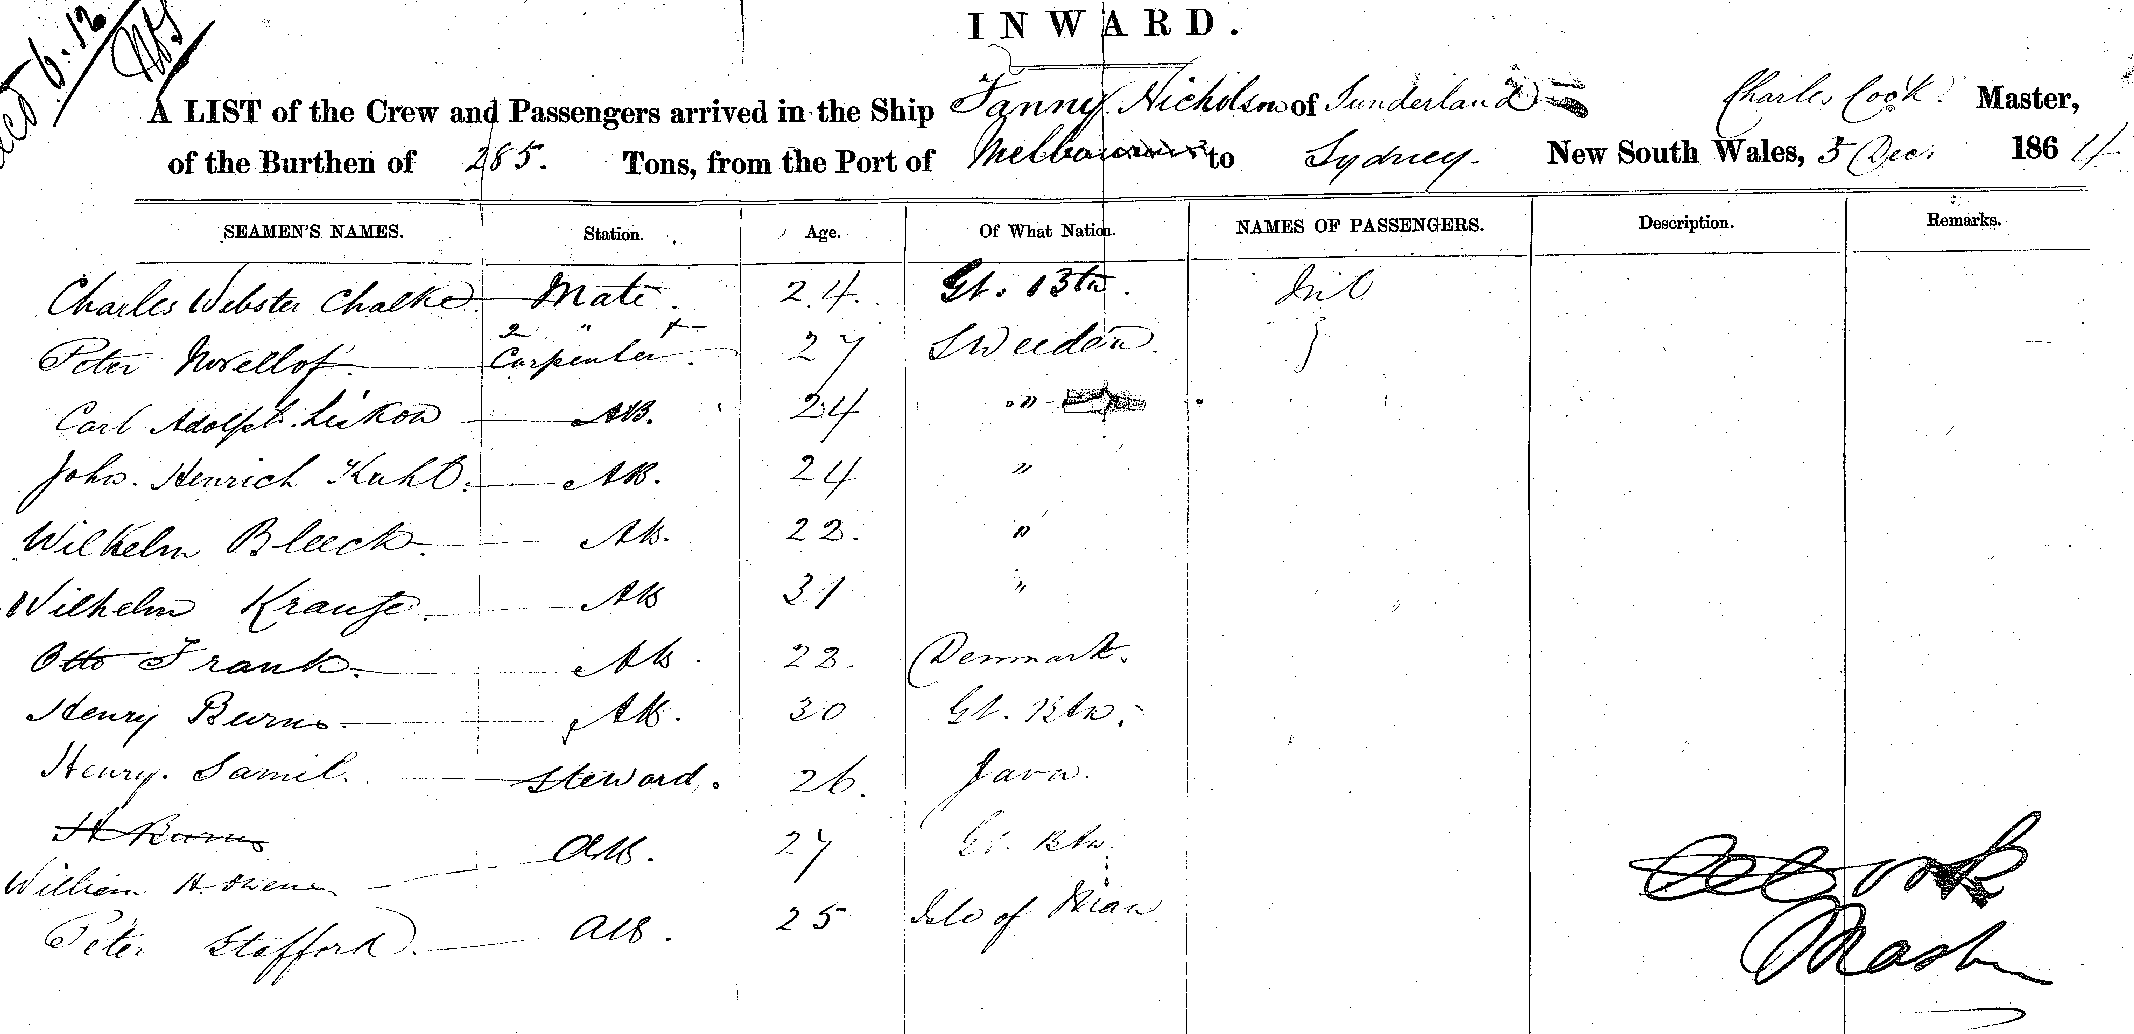 Recd 6.12
INWARD.
A LIST of the Crew and Passengers arrived in the Ship Fanny Nicholson of Sunderland Charles Cook Master,
of the Burthen of 285. Tons, from the Port of Melbourne to Sydney. New South Wales, 5 Dec. 1864
SEAMEN'S NAMES. Station. Age. Of What Nation. NAMES OF PASSENGERS. Description. Remarks.
Charles Webster Chalke Mate. 24. Gt. Btn. Nil
Peter 2 " & Carpenter. 27 Sweedon.
Carl Adolph AB. 24 "
John. Henrich Kuhl. AB. 24 "
Wilhelm Bleeck. AB. 22. "
Wilhelm Krause. AB 31 "
Otto Frank. AB. 22. Denmark.
Henry Burns. AB. 30 Gt. Btn.
Henry. Samil. Steward. 26. Java.
H Burns AB. 27 Gt. Btn.
William H. Owens
Peter Stafford. AB. 25 Isle of Man
C Cook
Master